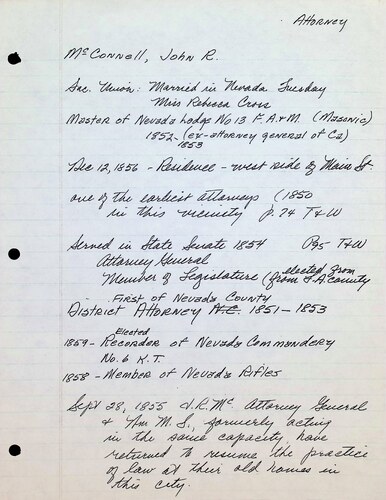 Attorney
McConnell, John R.
Sac. Union: Married in Nevada Tuesday
Miss Rebecca Cross
Master of Nevada Lodge No 13 F. A & M (Masonic)
1852- (ex-attorney general of Ca)
1853
Dec 12, 1856 - Residence - west side of Main St.
one of the earliest attorneys (1850
in this vicinity p. 74 T & W
Served in State Senate 1854 P95 T & W
Attorney General
Member of Legislature (elected from
from L.A. County
First of Nevada County
District Attorney N.C. 1851-1853
Elected
1859 - Recorder of Nevada Commandery
No. 6 K.T.
1858 - Member of Nevada Rifles
Sept 28, 1855 J.R. Mc. Attorney General
& Wm M. S., formerly acting
in the same capacity have
returned to resume the practice
of law at their old homes in
this city.